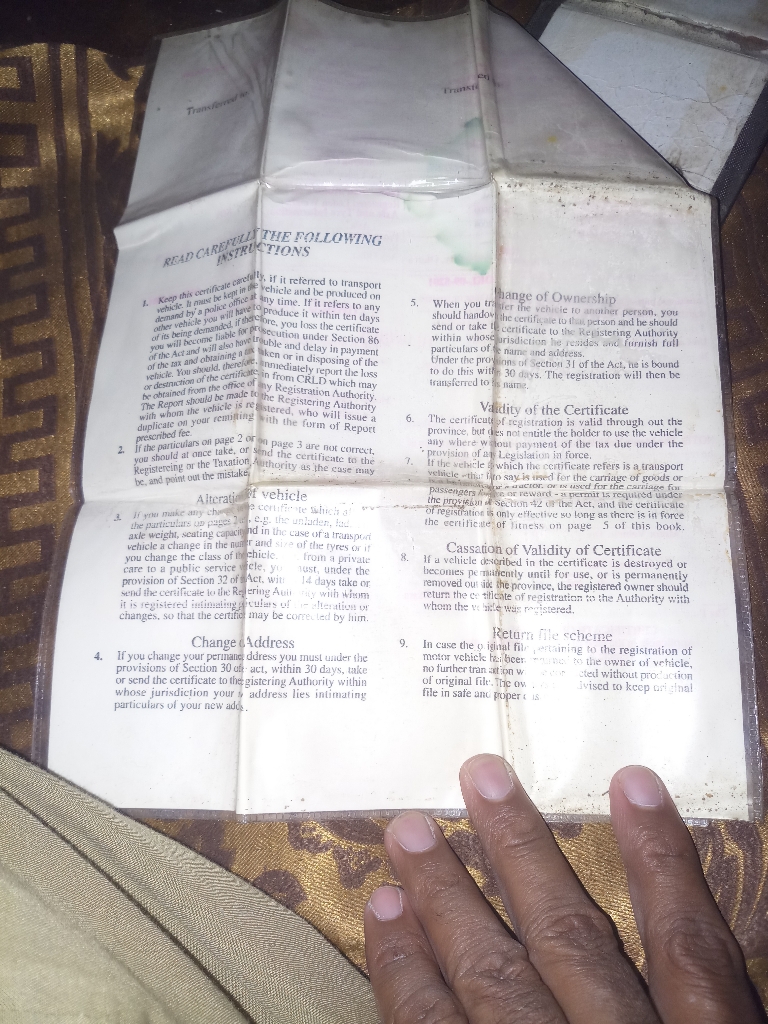 Transferred
Transf
READ CAREFULLY THE FOLLOWING
INSTRUCTIONS
1. Keep this certificate carefully, if it referred to transport
vehicle. It must be kept in the vehicle and be produced on
demand by a police office at any time. If it refers to any
other vehicle you will have to produce it within ten days
of its being demanded, if therefore, you loss the certificate
you will become liable for prosecution under Section 86
of the Act and will also have trouble and delay in payment
of the tax and obtaining a tax token or in disposing of the
vehicle. You should, therefore, immediately report the loss
or destruction of the certificate in from CRLD which may
be obtained from the office of any Registration Authority.
The Report should be made to the Registering Authority
with whom the vehicle is registered, who will issue a
duplicate on your remitting with the form of Report
prescribed fee.
2. If the particulars on page 2 or on page 3 are not correct,
you should at once take, or send the certificate to the
Registereing or the Taxation Authority as the case may
be, and point out the mistake.
Alteration of vehicle
3. If you make any change certificate which a
the particulars on page 2 e.g. the unladen, lad
axle weight, seating capac nd in the case of a transport
vehicle a change in the number and size of the tyres or if
you change the class of vehicle. from a private
care to a public service vehicle, you must, under the
provision of Section 32 of Act, within 14 days take or
send the certificate to the Registering Authority with whom
it is registered intimating particulars of the alteration or
changes, so that the certificate may be corrected by him.
Change of Address
4. If you change your permanent address you must under the
provisions of Section 30 of act, within 30 days, take
or send the certificate to the Registering Authority within
whose jurisdiction your address lies intimating
particulars of your new address.
Change of Ownership
5. When you transfer the vehicle to another person, you
should handover the certificate to that person and he should
send or take the certificate to the Registering Authority
within whose jurisdiction he resides and furnish full
particulars of name and address.
Under the provisions of Section 31 of the Act, he is bound
to do this within 30 days. The registration will then be
transferred to his name.
Validity of the Certificate
6. The certificate of registration is valid through out the
province, but does not entitle the holder to use the vehicle
any where without payment of the tax due under the
provision of any Legislation in force.
7. If the vehicle which the certificate refers is a transport
vehicle - that to say is used for the carriage of goods or
is used for the carriage for
passengers or reward - a permit is required under
the provision of Section 42 of the Act, and the certificate
of registration is only effective so long as there is in force
the certificate of fitness on page 5 of this book.
Cassation of Validity of Certificate
8. If a vehicle described in the certificate is destroyed or
becomes permanently until for use, or is permanently
removed outside the province, the registered owner should
return the certificate of registration to the Authority with
whom the vehicle was registered.
Return file scheme
9. In case the original file pertaining to the registration of
motor vehicle has been returned to the owner of vehicle,
no further transaction will be conducted without production
of original file. The owner is advised to keep original
file in safe and proper